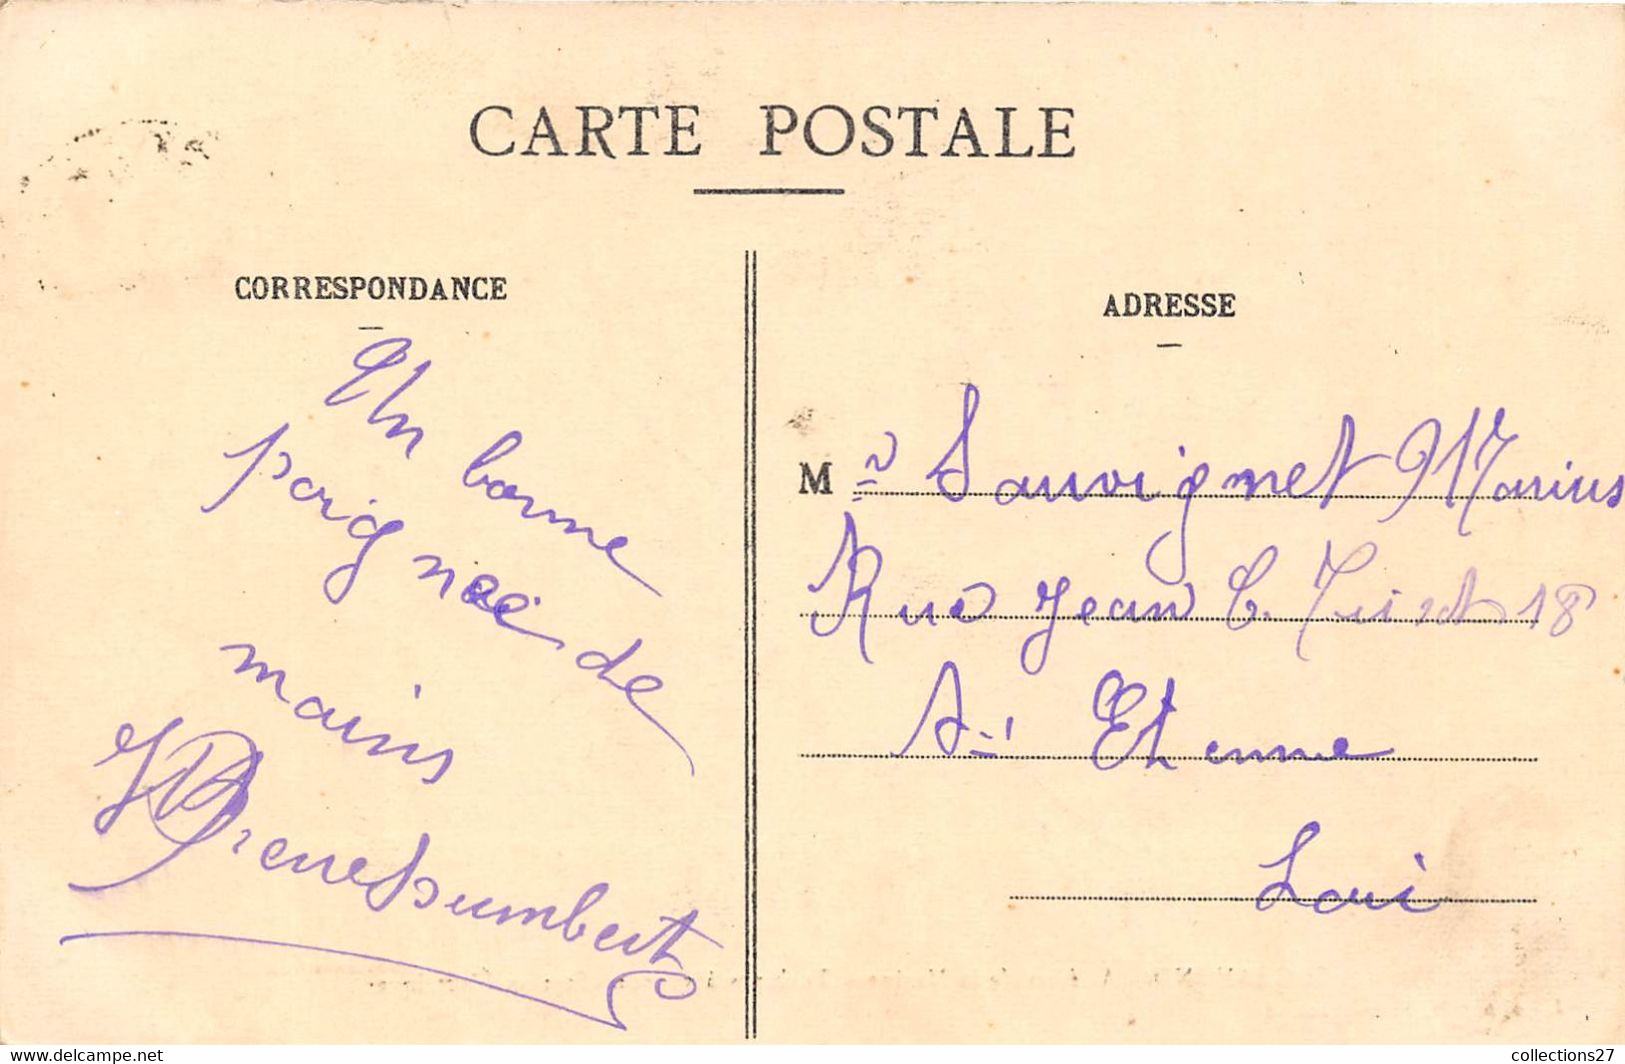 CARTE POSTALE
CORRESPONDANCE
Un bonne
poignee de
mains
ADRESSE
Mr Sauvignet Marius
Rue Jean C. 18
St Etienne
Lori
www.delcampe.net
collections27